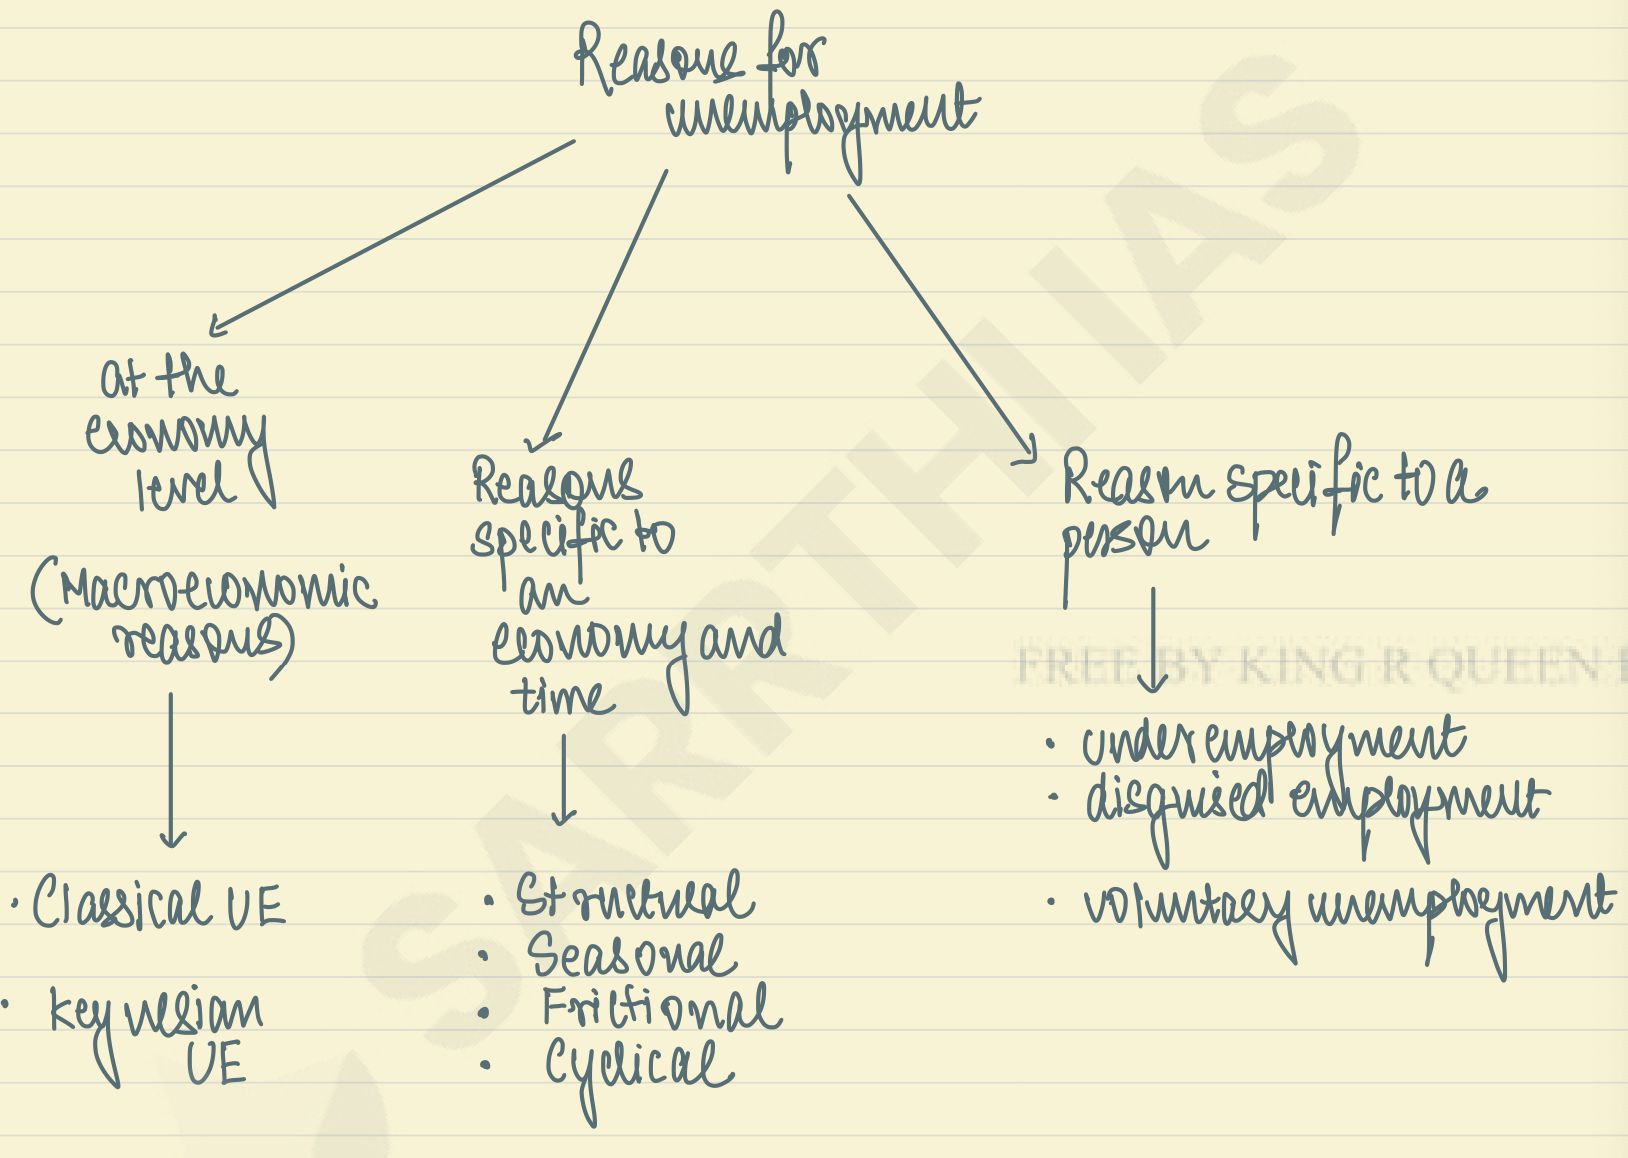 Reasons for
unemployment
at the
economy
level
(Macroeconomic
reasons)
· Classical UE
· Keynesian
UE
Reasons
specific to
an
economy and
time
· Structural
· Seasonal
· Frictional
· Cyclical
Reason specific to a
person
· underemployment
· disguised employment
· voluntary unemployment
SARRTHI IAS
FREE BY KING R QUEEN